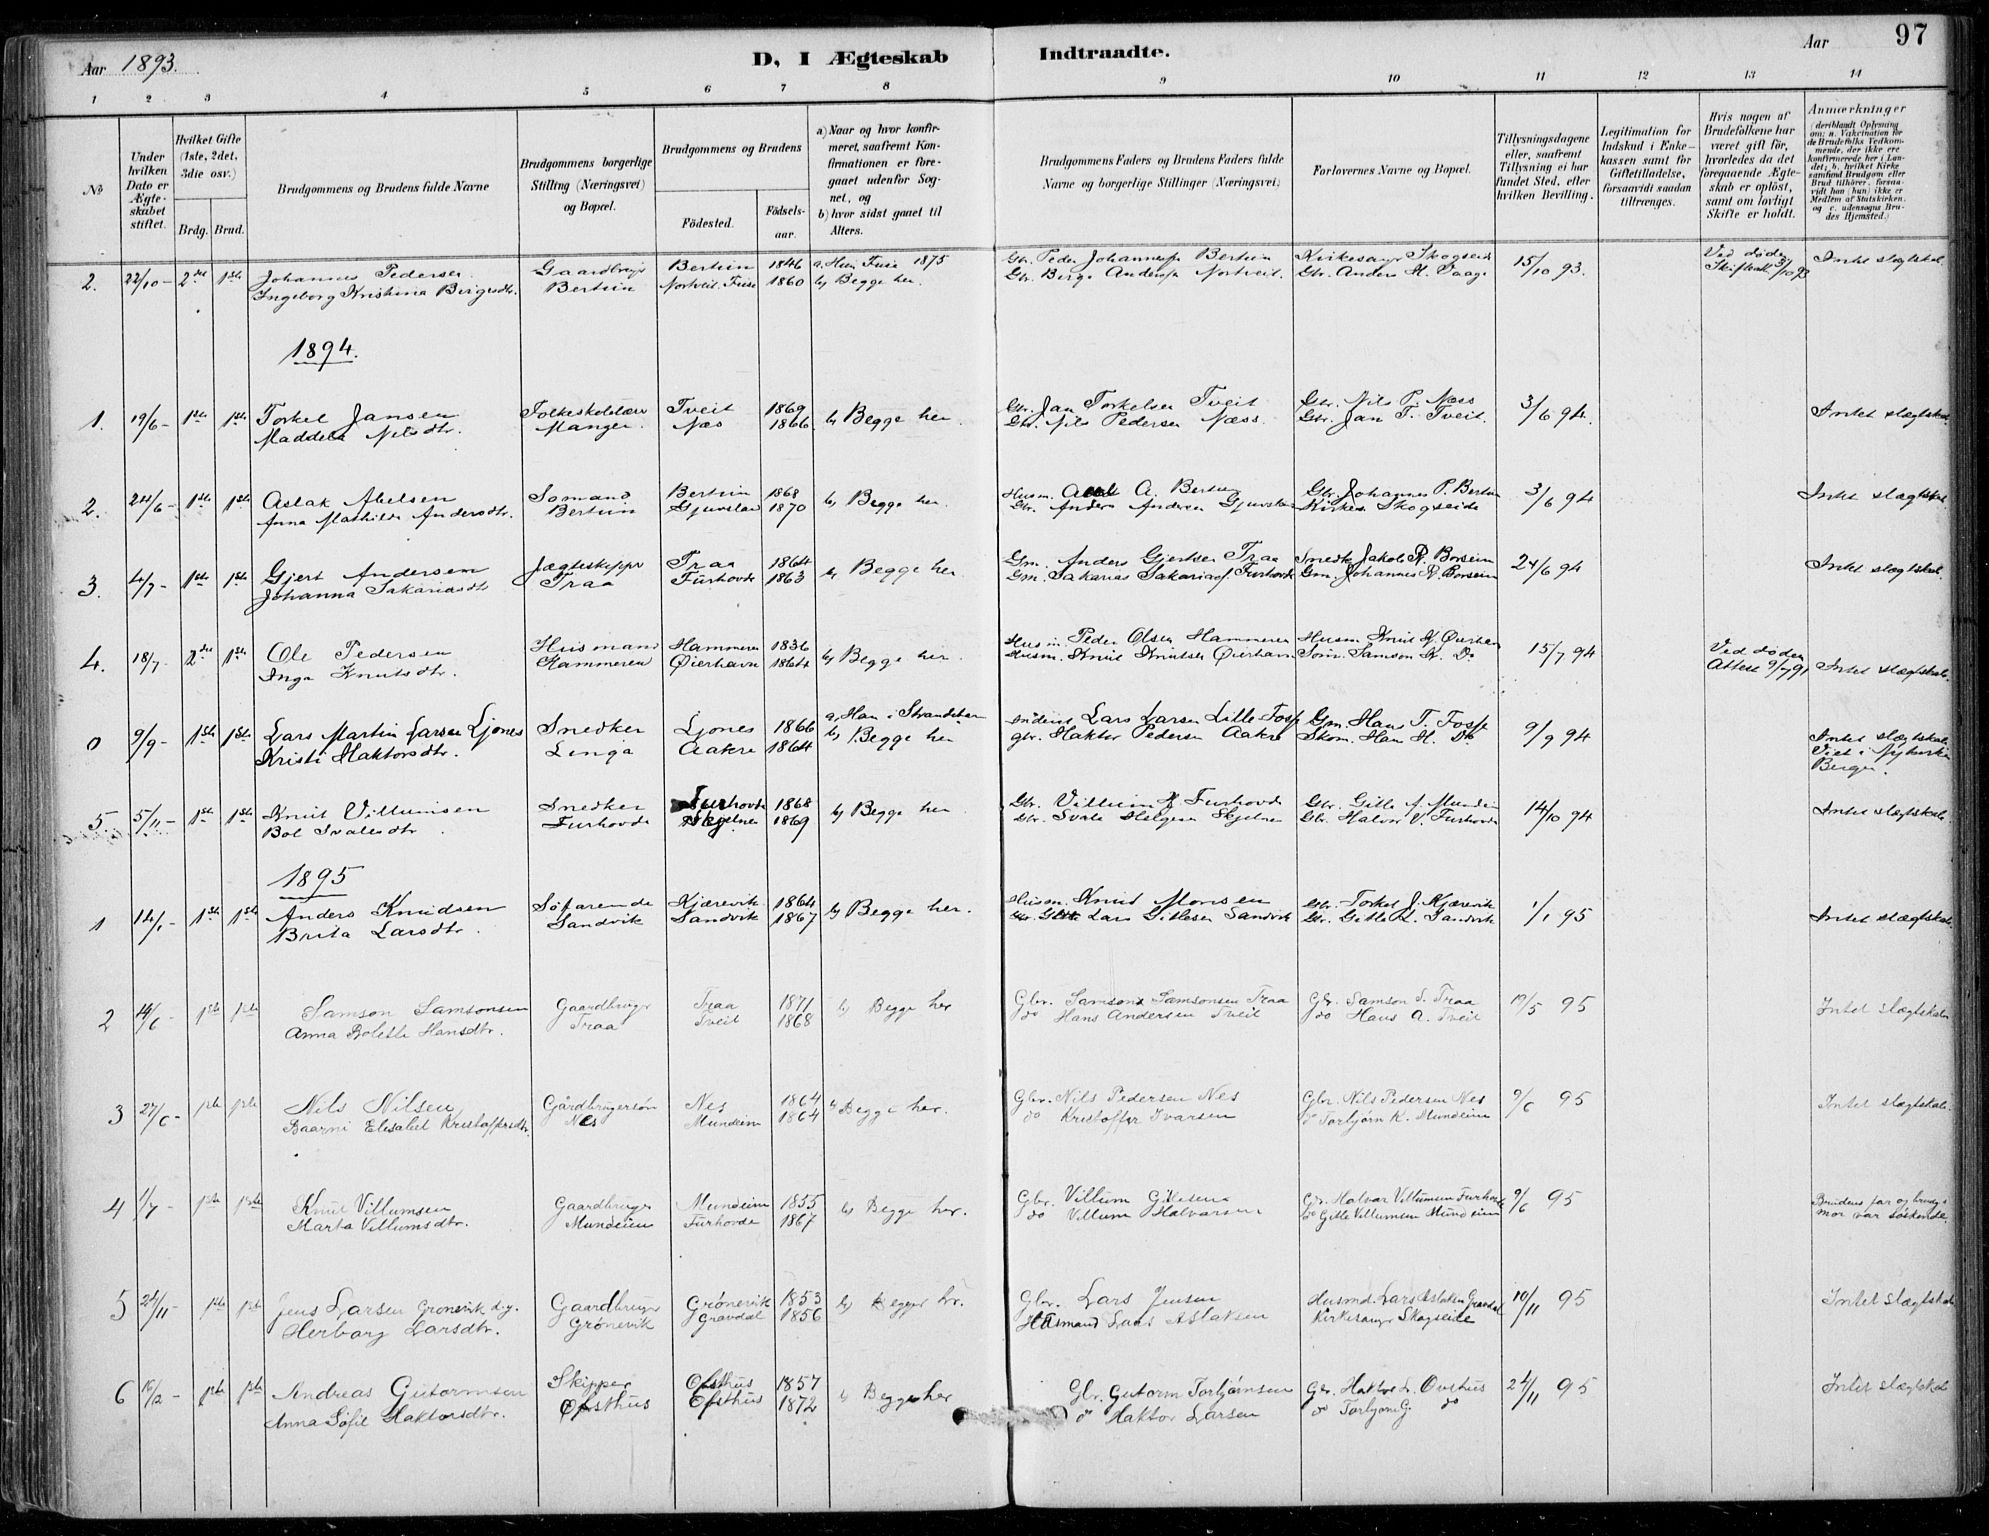 Aar 1893.
D, I Ægteskab Indtraadte.
Aar
97
1 2 3 4 5 6 7 8 9 10 11 12 13 14
No
Under hvilken Dato er Ægteskabet stiftet.
Hvilket Gifte (1ste, 2det, 3die osv.)
Brdg. Brud.
Brudgommens og Brudens fulde Navne
Brudgommens borgerlige Stilling (Næringsvei) og Bopæl.
Brudgommens og Brudens
Fødested.
Fødselsaar.
a) Naar og hvor konfirmeret, saafremt Konfirmationen er foregaaet udenfor Sognet, og
b) hvor sidst gaaet til Alters.
Brudgommens Faders og Brudens Faders fulde Navne og borgerlige Stillinger (Næringsvei)
Forlovernes Navne og Bopæl.
Tillysningsdagene eller, saafremt Tillysning ei har fundet Sted, efter hvilken Bevilling.
Legitimation for Indskud i Enkekassen samt for Giftetilladelse, forsaavidt saadan tiltrænges.
Hvis nogen af Brudefolkene har været gift før, hvorledes da det foregaaende Ægteskab er opløst, samt om lovligt Skifte er holdt.
Anmærkninger
(deriblandt Oplysning om: a. Vakcination for de Brudefolks Vedkommende, der ikke ere konfirmerede her i Landet; b. hvilket Kirkesamfund Brudgom eller Brud tilhører, forsaavidt han (hun) ikke er Medlem af Statskirken. og c. udensogns Brudes Hjemsted.)
2. 22/10 - 2den 1ste Johannes Pedersen Gaardbruger Bertun 1846 a, Hun Fuse 1875 Gbr. Peder Johannessen Bertun Kirkesanger Skogseide 15/10 93. Ved døden Intet slægtskab.
Ingeborg Kristina Bergesdtr. Bertun Nortveit. Fuse 1860 b, Begge her. Gbr. Berge Anderssen Nortveit. Gbr. Anders H. Vaage Skifteatt. 3/10 93
1894.
1. 19/6 - 1ste 1ste Torkel Jansen Folkeskolelærer Tveit 1869 b, Begge her. Gbr. Jan Torkelsen Tveit Gbr. Nils P. Næss 3/6 94. Intet slægtskab.
Maddela Nilsdtr. Manger. Næs 1866. Gbr. Nils Pedersen Næss. Gbr. Jan T. Tveit.
2. 24/6 - 1ste 1ste Aslak Abelsen Sømand Bertun 1868 b, Begge her. Husm. A. Bertun Gbr. Johannes P. Bertun 3/6 94 Intet slægtskab
Anna Mathilde Andersdtr. Bertun Gjuvsland 1870 Gbr. Anders Andersen Gjuvsland Kirkes. Skogseide
3. 4/7 - 1ste 1ste Gjert Andersen Jægteskipper Traa 1864 b, Begge her. Gm. Anders Gjertsen Traa Snedker Jakob N. Borsein 24/6 94 Intet slægtskab.
Johanna Sakariasdtr Traa Furhovde 1863 Gm. Sakarias Sakariass. Furhovde Gm. Johannes N. Borsein
4. 18/7 - 2den 1ste Ole Pedersen Husmand Hammeren 1836 b, Begge her. Husm. Peder Olsen Hammeren Husm. Knut K. Øierhavn 15/7 94 Ved døden Intet slægtskab.
Inga Knutsdtr. Hammeren Øierhavn 1864 Husm. Knut Knutsen Øierhavn Søm. Samson K. Do Attest 9/7 91
0 9/9 - 1ste 1ste Lars Martin Larsen Ljones Snedker Ljones 1866 a, Han i Strandebarm Lars Larsen Lille-Fosse Gm. Hans T. Fosse 9/9 94 Intet slægtskab.
Kristi Haktorsdtr. Linga Aakre 1864 b, Begge her gbr. Haktor Pedersen Aakre Skom. Hans H. Do Viet i Nykirken Bergen.
5. 5/11 - 1ste 1ste Knut Villumsen Snedker Furhovde 1868 b, Begge her Gbr. Villum H. Furhovde Gbr. Gitle A. Mundeim 14/10 94 Intet slægtskab.
Bol Svalesdtr Furhovde Skjelnes 1869 Gbr. Svale Helgesen Skjelnes Gbr. Halvor V. Furhovde
1895
1 14/1 - 1ste 1ste Anders Knudsen Søfarende Kjærevik 1864 b, Begge her. Husm. Knud Monsen Gbr. Torkel J. Kjærevik 1/1 95 Intet slægtskab.
Brita Larsdtr. Sandvik Sandvik 1867 Gbr. Lars Gitlesen Sandvik Gbr. Gitle L. Sandvik
2 14/6 - 1ste 1ste Samson Samsonsen Gaardbruger Traa 1871 b, Begge her Gbr. Samson Samsonsen Traa Gbr. Samson S. Traa 19/5 95 Intet slægtskab
Anna Bolette Hansdtr. Traa Tveit 1868 do Hans Andersen Tveit do Hans A. Tveit
3 27/6 - 1ste 1ste Nils Nilsen Gårdbrugersøn Nes 1864 b, Begge her. Gbr. Nils Pedersen Nes Gbr. Nils Pedersen Nes 9/6 95 Intet slægtskab.
Baarni Elisabet Kristoffersdtr. Nes Mundeim 1864 do Kristoffer Ivarsen do Torbjørn K. Mundeim
4 1/7 - 1ste 1ste Knut Villumsen Gaardbruger Mundeim 1855 b, Begge her. Gbr. Villum Gitlesen Gbr. Halvar Villumsen Furhovde 9/6 95 Brudens far og brudg.s
Marta Villumsdtr. Mundeim Furhovde 1867 do Villum Halvarsen do Gitle Villumsen Mundeim mor var søskende
5 24/11 - 1ste 1ste Jens Larsen Grønevik d.y. Gaardbruger Grønevik 1853 b, Begge her. Gbr. Lars Jensen Husmd. Lars Aslaksen Gravdal 10/11 95 Intet slægtskab
Herborg Larsdtr. Grønevik Gravdal 1856 Husmand Lars Aslaksen Kirkesanger Skogseide
6 16/2 - 1ste 1ste Andreas Gutormsen Skipper Øfsthus 1857 b, Begge her Gbr. Gutorm Torbjørnsen Gbr. Haktor L. Ovsthus 24/11 95 Intet slægtskab
Anna Søfie Haktorsdtr. Øfsthus Øfsthus 1872 do Haktor Larsen do Torbjørn G. do